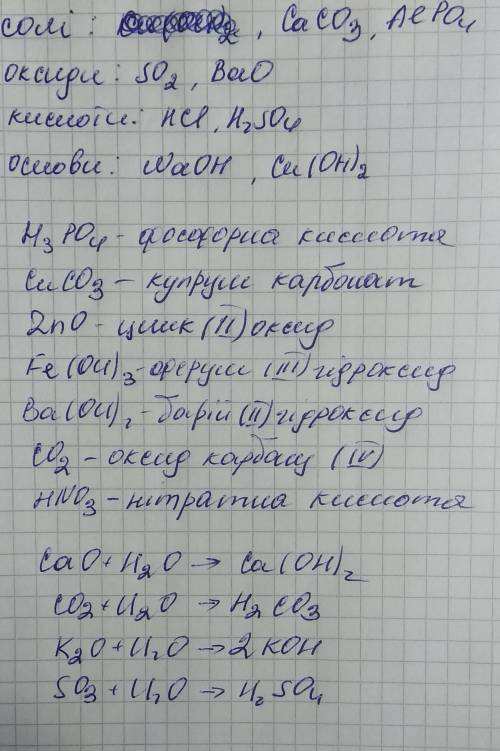 солі: , CaCO₃, AlPO₄
оксиди: SO₂, BaO
кислоти: HCl, H₂SO₄
основи: NaOH, Cu(OH)₂
H₃PO₄ - фосфорна кислота
CuCO₃ - купрум карбонат
ZnO - цинк (II) оксид
Fe(OH)₃ - ферум (III) гідроксид
Ba(OH)₂ - барій (II) гідроксид
CO₂ - оксид карбону (IV)
HNO₃ - нітратна кислота
CaO + H₂O → Ca(OH)₂
CO₂ + H₂O → H₂CO₃
K₂O + H₂O → 2KOH
SO₃ + H₂O → H₂SO₄